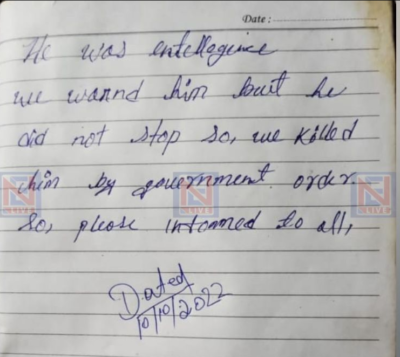 Date :
He was entellagence
we warnd him but he
did not stop so, we killed
him by government order
So, please informed to all,
Dated
10/10/2022